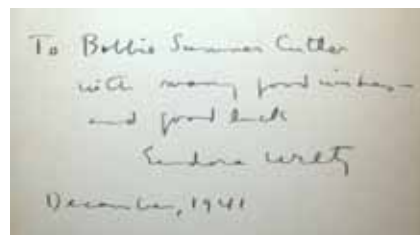 To Bobbie Summer Cutler
with many good wishes
and good luck
Eudora Welty
December, 1941